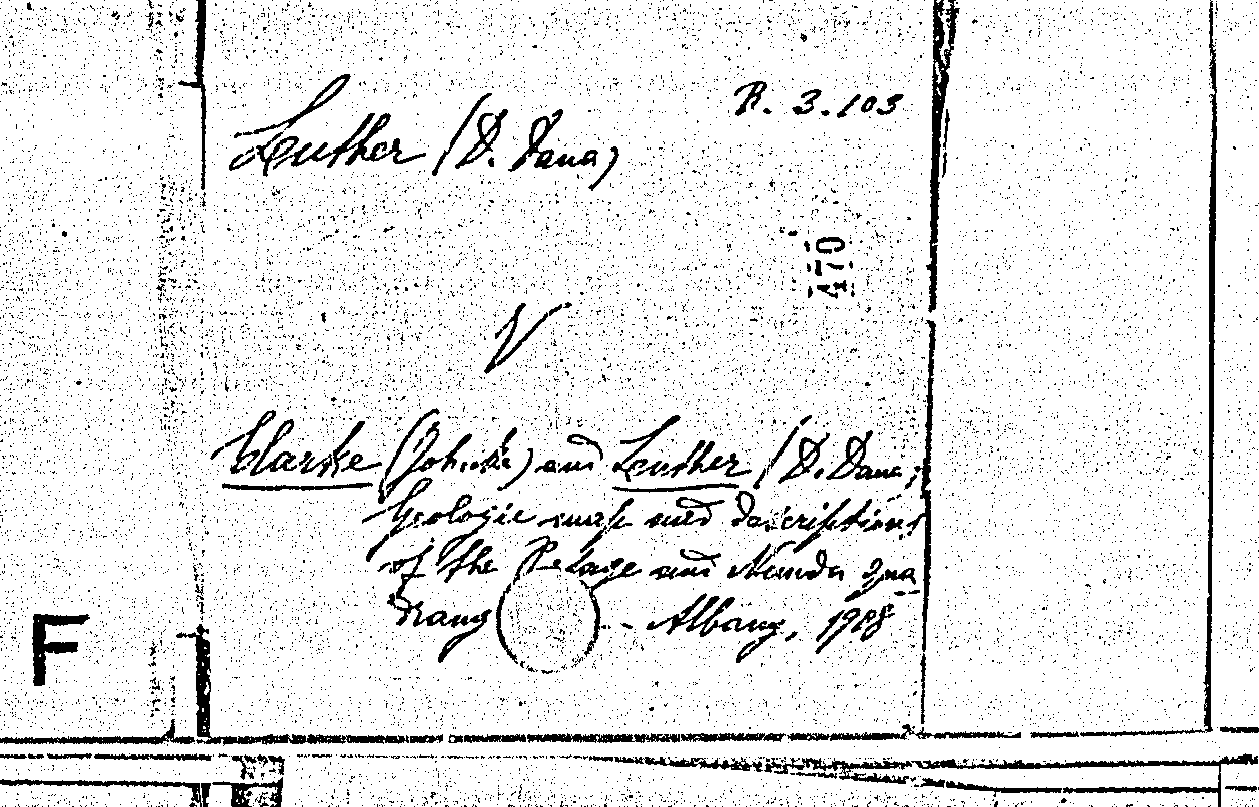 R. 3.103
Luther (D. Dana)
470
V
Clarke (John M.) and Luther (D. Dana)
Geologic map and descriptions
of the Portage and Nunda Qua
drang -- Albany, 1908
F